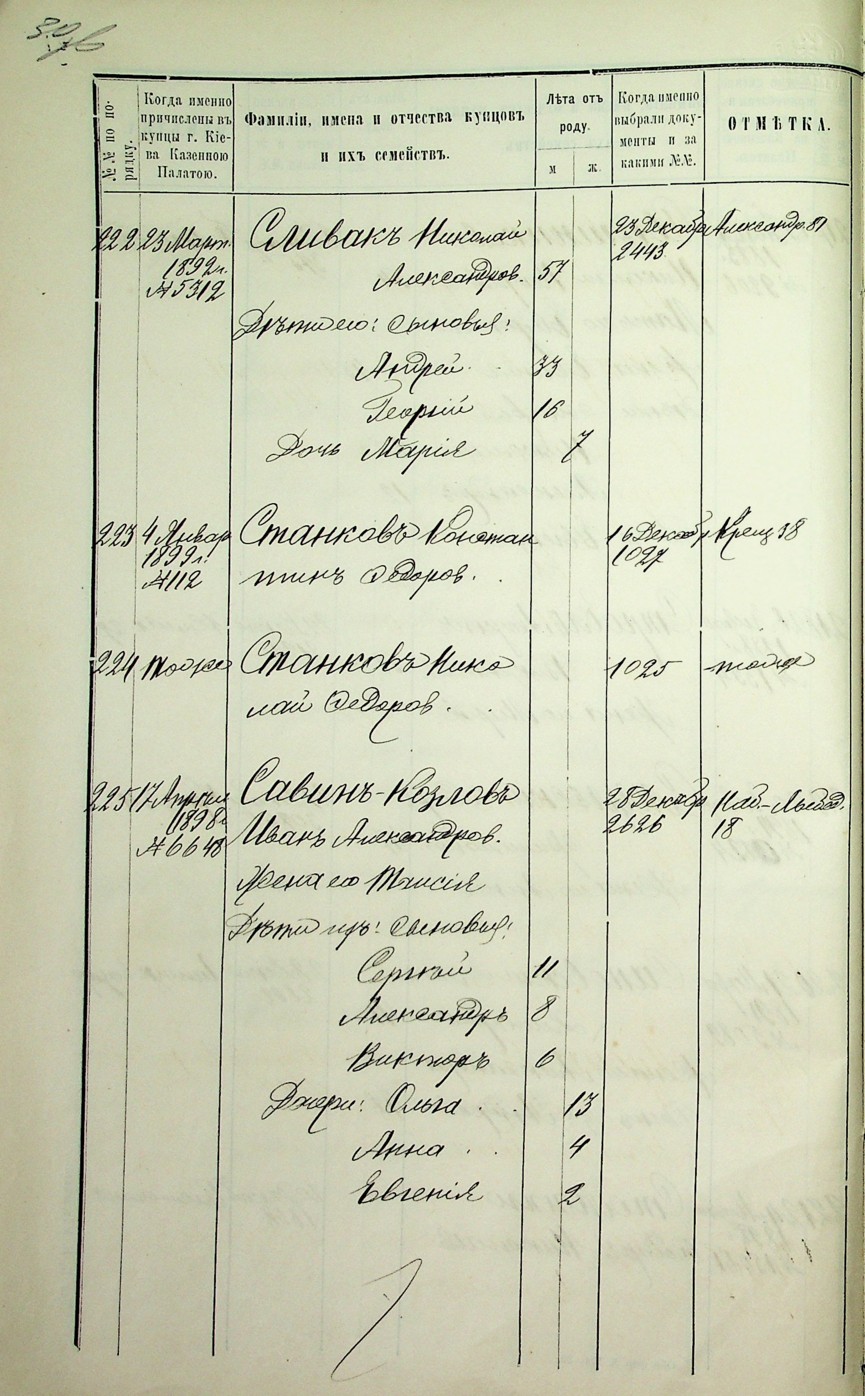 №№ по по-
рядку.
Когда именно
причислены въ
купцы г. Кіе-
ва Казенною
Палатою.
Фамиліи, имена и отчества купцовъ
и ихъ семействъ.
Лѣта отъ
роду.
м
ж.
Когда именно
выбрали доку-
менты и за
какими №№.
ОТМѢТКА.
222 23 Март. Сливакъ Николай 23 Декабр Александр. 81
1892 г. 2443
№ 5312 Александров. 57
Дѣти его: сыновья:
Андрей 33
Георгій 16
Дочь Марія 7
223 4 Январ Станковъ Констан 16 Декабр Крещ 38
1899 г. 1027
№ 112 тинъ Ѳедоров.
224 тоже Станковъ Нико 1025 тоже
лай Ѳедоров.
225 17 Апрѣля Савинъ-Козловъ 28 Декабр Наб.-
1898 г. 2626 18
№ 6648 Иванъ Александров.
Жена его Таисія
Дѣти ихъ: сыновья:
Сергѣй 11
Александръ 8
Викторъ 6
Дочери: Ольга 13
Анна 4
Евгенія 2